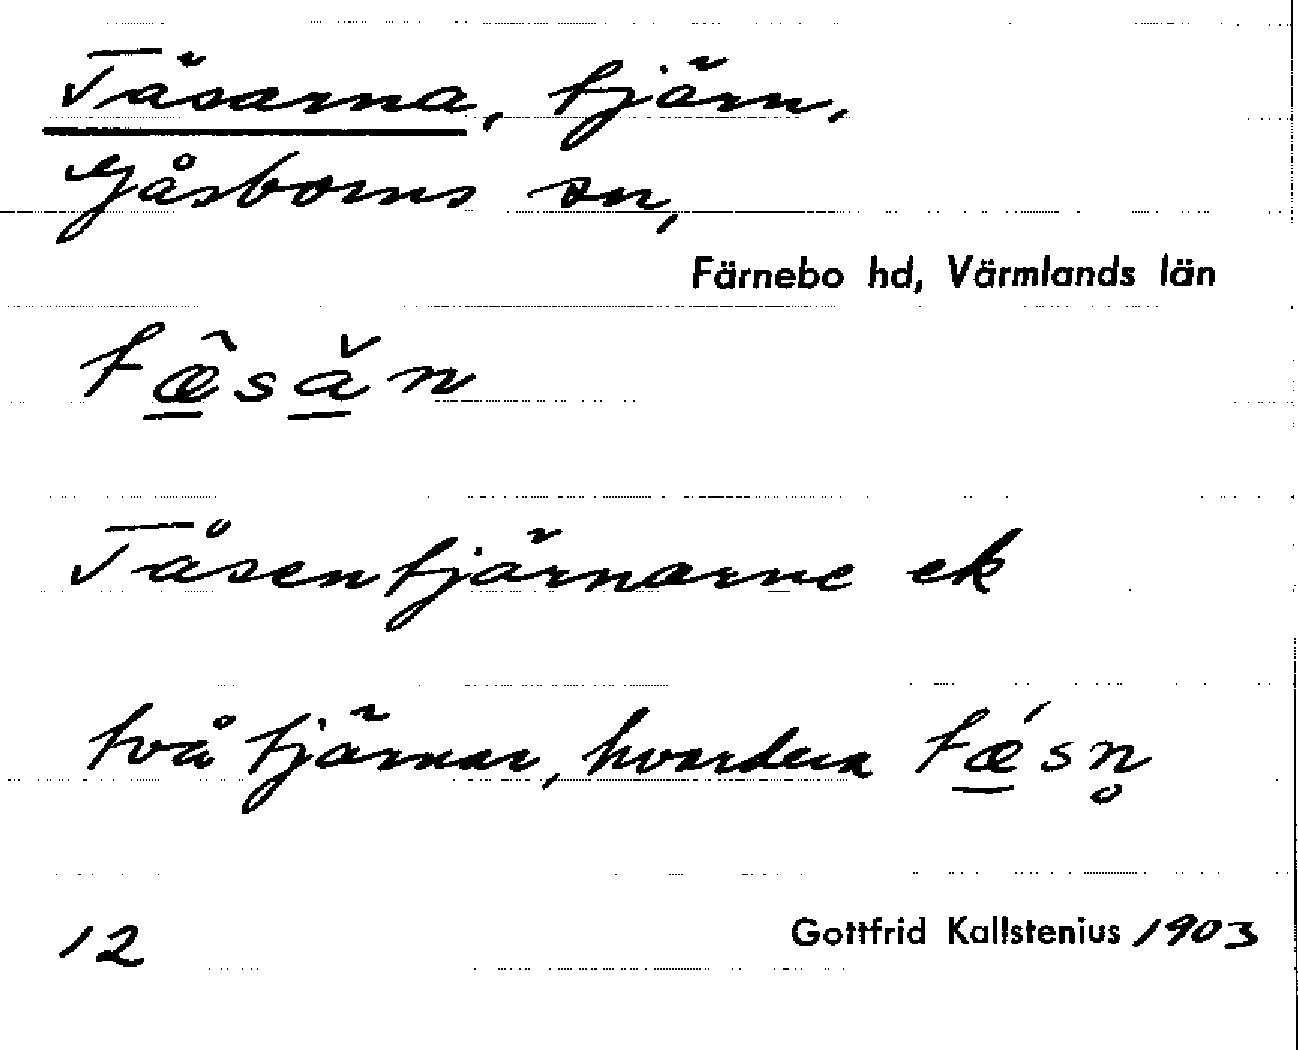 Täsarna, tjärn,
Gåsborns sn,
Färnebo hd, Värmlands län
tæ̂sǎn
Tåsentjärnarne ek
två tjärnar, hvardera tǽsn̥
12 Gottfrid Kallstenius 1903